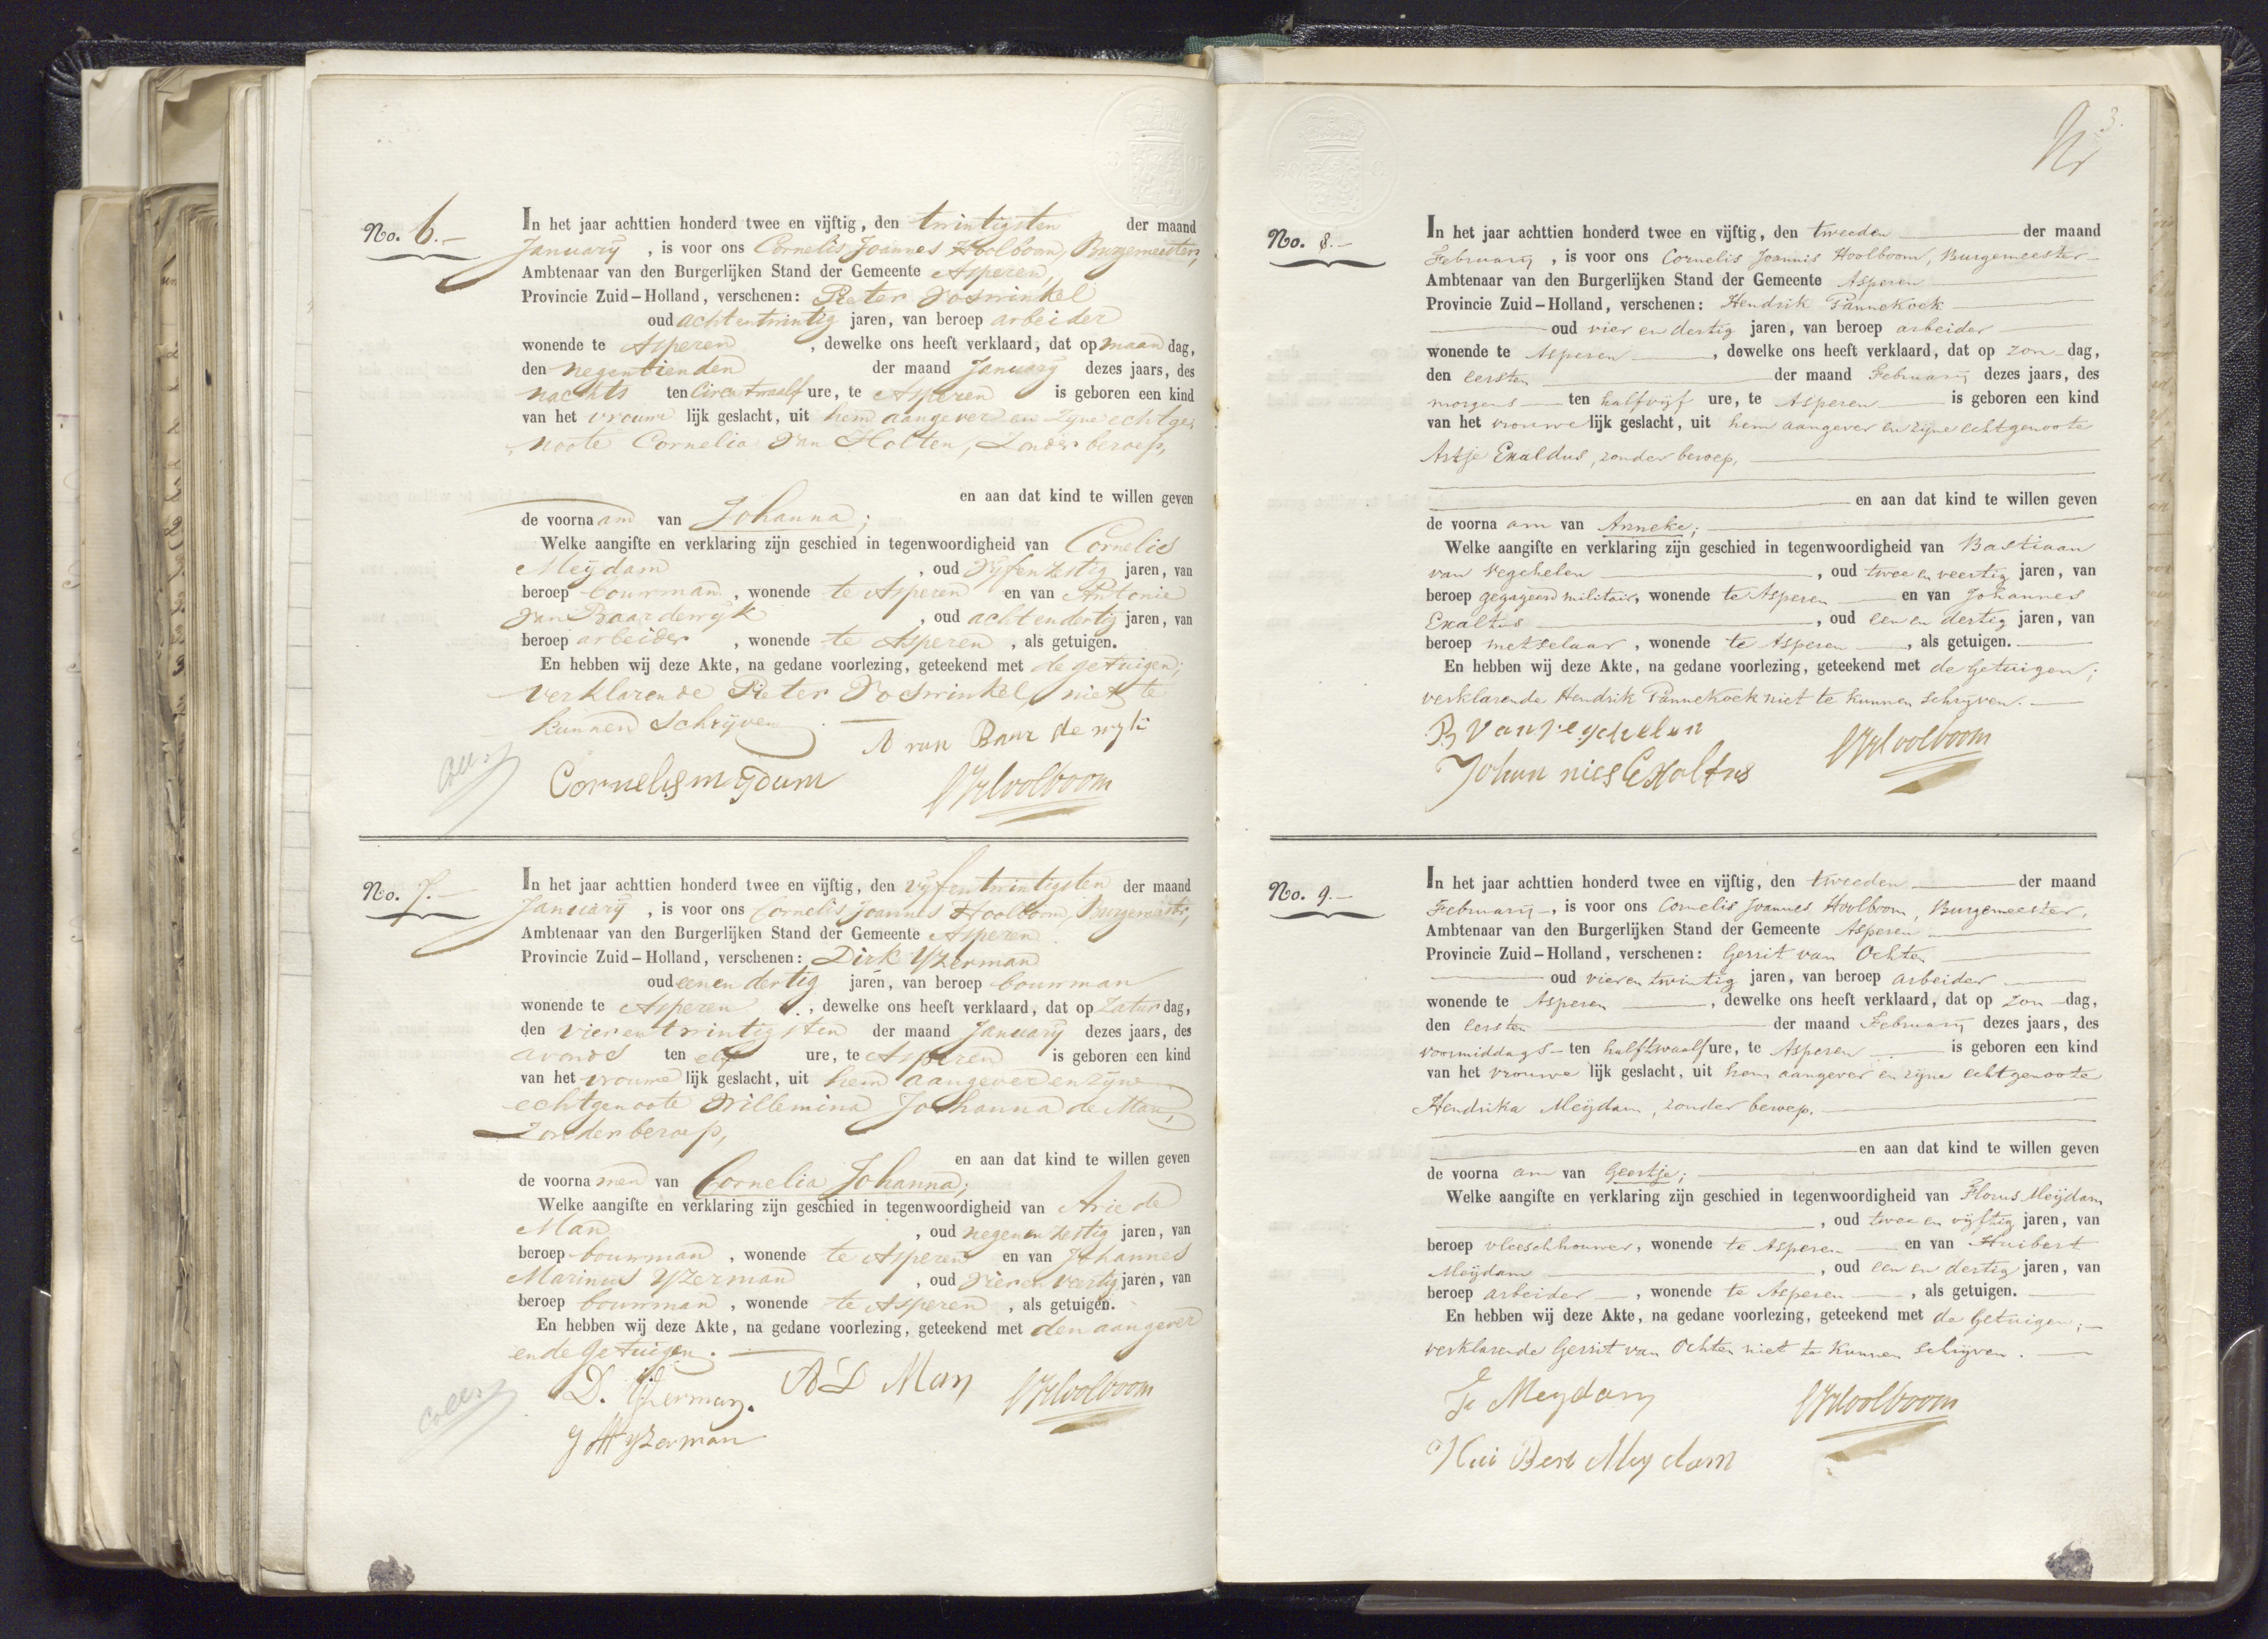 No. 6.-
In het jaar achttien honderd twee en vijftig, den twintigsten der maand
January, is voor ons Cornelis Joannes Hoolboom, Burgemeester,
Ambtenaar van den Burgerlijken Stand der Gemeente Asperen,
Provincie Zuid-Holland, verschenen: Pieter Voswinkel
oud acht en twintig jaren, van beroep arbeider
wonende te Asperen, dewelke ons heeft verklaard, dat op maandag,
den negentienden der maand January dezes jaars, des
nachts ten circa twaalf ure, te Asperen is geboren een kind
van het vrouwelijk geslacht, uit hem aangever en zijne echtge,
noote Cornelia van Holten, zonder beroep,
en aan dat kind te willen geven
de voornaam van Johanna;
Welke aangifte en verklaring zijn geschied in tegenwoordigheid van Cornelis
Meijdam, oud vyf en zestig jaren, van
beroep bouwman, wonende te Asperen en van Antonie
van Baardewyk, oud acht en dertig jaren, van
beroep arbeider, wonende te Asperen, als getuigen.
En hebben wij deze Akte, na gedane voorlezing, geteekend met de getuigen;
verklarende Pieter Voswinkel, niet te
kunnen schrijven.
A van Baar de wyk
Cornelis mijdam
CJHoolboom
No. 7.-
In het jaar achttien honderd twee en vijftig, den vyfentwintigsten der maand
January, is voor ons Cornelis Joannes Hoolboom, Burgemeester,
Ambtenaar van den Burgerlijken Stand der Gemeente Asperen
Provincie Zuid-Holland, verschenen: Dirk Yzerman
oud een en dertig jaren, van beroep bouwman
wonende te Asperen, dewelke ons heeft verklaard, dat op Zaturdag,
den vier en twintigsten der maand January dezes jaars, des
avonds ten elf ure, te Asperen is geboren een kind
van het vrouwelijk geslacht, uit hem aangever en zyne
echtgenoote Willemina Johanna de Man,
zonder beroep,
en aan dat kind te willen geven
de voornamen van Cornelia Johanna;
Welke aangifte en verklaring zijn geschied in tegenwoordigheid van Arie de
Man, oud negen en zestig jaren, van
beroep bouwman, wonende te Asperen en van Johannes
Marinus Yzerman, oud vier en veertig jaren, van
beroep bouwman, wonende te Asperen, als getuigen.
En hebben wij deze Akte, na gedane voorlezing, geteekend met den aangever
en de getuigen.
D. Yzerman. AD Man CJHoolboom
J M yzerman
3.
No. 8.-
In het jaar achttien honderd twee en vijftig, den tweeden der maand
February, is voor ons Cornelis Joannis Hoolboom, Burgemeester
Ambtenaar van den Burgerlijken Stand der Gemeente Asperen
Provincie Zuid-Holland, verschenen: Hendrik Pannekoek
oud vier en dertig jaren, van beroep arbeider
wonende te Asperen, dewelke ons heeft verklaard, dat op zon-dag,
den eersten der maand February dezes jaars, des
morgens ten half vyf ure, te Asperen is geboren een kind
van het vrouwelijk geslacht, uit hem aangever en zijne echtgenoote
Artje Exaldus, zonder beroep,
en aan dat kind te willen geven
de voornaam van Anneke;
Welke aangifte en verklaring zijn geschied in tegenwoordigheid van Bastiaan
van Vegchelen, oud twee en veertig jaren, van
beroep gegageerd militair, wonende te Asperen en van Johannes
Exaltus, oud een en dertig jaren, van
beroep metselaar, wonende te Asperen, als getuigen.
En hebben wij deze Akte, na gedane voorlezing, geteekend met de getuigen;
verklarende Hendrik Pannekoek niet te kunnen schryven.
B Van Vegchelen
Johan nies Exaltus
CJHoolboom
No. 9.-
In het jaar achttien honderd twee en vijftig, den tweeden der maand
February, is voor ons Cornelis Joannes Hoolboom, Burgemeester,
Ambtenaar van den Burgerlijken Stand der Gemeente Asperen
Provincie Zuid-Holland, verschenen: Gerrit van Ochten
oud vier en twintig jaren, van beroep arbeider
wonende te Asperen, dewelke ons heeft verklaard, dat op zon-dag,
den eersten der maand February dezes jaars, des
voormiddags ten half twaalf ure, te Asperen is geboren een kind
van het vrouwelijk geslacht, uit hem aangever en zijne echtgenoote
Hendrika Meijdam, zonder beroep,
en aan dat kind te willen geven
de voornaam van Geertje;
Welke aangifte en verklaring zijn geschied in tegenwoordigheid van Florus Meijdam
, oud twee en vijftig jaren, van
beroep vleeschhouwer, wonende te Asperen en van Huibert
Meijdam, oud een en dertig jaren, van
beroep arbeider, wonende te Asperen, als getuigen.
En hebben wij deze Akte, na gedane voorlezing, geteekend met de getuigen;
verklarende Gerrit van Ochten niet te kunnen schrijven.
F Meydam
CJHoolboom
Hui Bert Mey dam